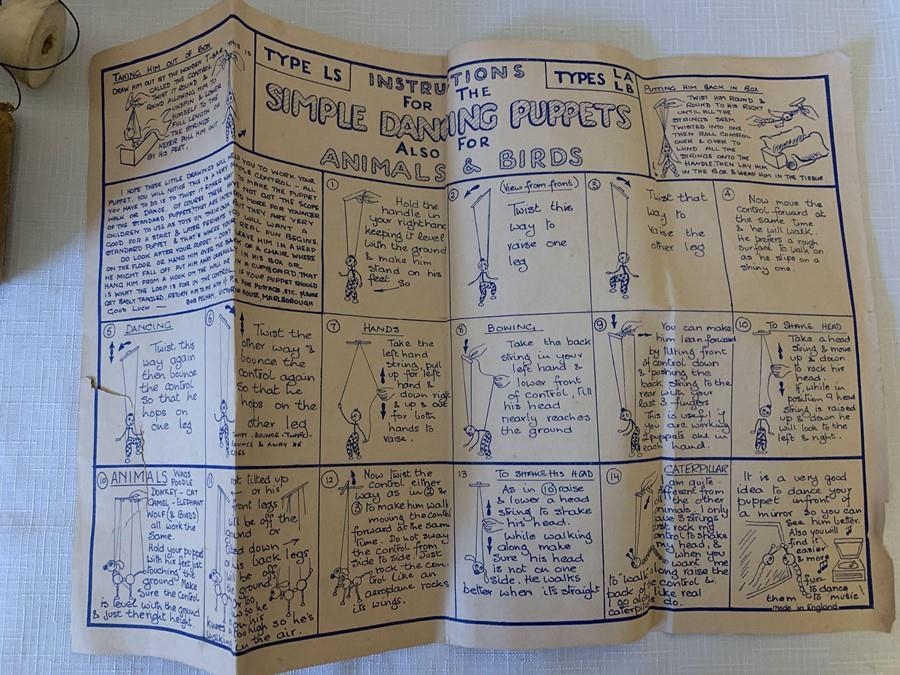 TAKING HIM OUT OF BOX
DRAW HIM OUT BY THE WOODEN T-BAR
CALLED THE CONTROL
TWIST IT ROUND &
ROUND ALLOWING HIM TO
UNSPIN & LOWER
HIMSELF TO THE
FULL LENGTH
THE STRINGS
NEVER PULL HIM OUT
BY HIS FEET.
THIS IS
TYPE LS
INSTRUCTIONS
FOR THE
SIMPLE DANCING PUPPETS
ALSO FOR
ANIMALS & BIRDS
TYPES LA
LB
PUTTING HIM BACK IN BOX
TWIST HIM ROUND &
ROUND TO HIS RIGHT
UNTIL ALL THE
STRINGS SEEM
TWISTED INTO ONE
THEN ROLL CONTROL
OVER & OVER TO
WIND ALL THE
STRINGS ONTO THE
HANDLE. THEN LAY HIM
IN THE BOX & WRAP HIM IN THE TISSUE
I HOPE THESE LITTLE DRAWINGS WILL HELP YOU TO WORK YOUR
PUPPET. YOU WILL NOTICE THIS IS A VERY SIMPLE CONTROL - ALL
YOU HAVE TO DO IS TWIST IT TO MAKE THE PUPPET
WALK OR DANCE. OF COURSE THESE HAVE NOT GOT THE SCOPE
OF THE STANDARD PUPPETS, THEY ARE MORE FOR YOUNGER
CHILDREN TO USE AS TOYS BUT THEY ARE VERY
GOOD FOR A START & LATER YOU WILL WANT A
STANDARD PUPPET & THAT'S WHERE REAL FUN BEGINS.
DO LOOK AFTER YOUR PUPPET - DON'T LEAVE HIM IN A HEAP
ON THE FLOOR OR HANG HIM OVER THE BACK OF A CHAIR WHERE
HE MIGHT FALL OFF. PUT HIM AWAY IN HIS BOX OR
HANG HIM FROM A HOOK ON THE WALL IN A CUPBOARD, THAT
IS WHAT THE LOOP IS FOR IN THE CONTROL. IF YOUR PUPPET SHOULD
GET BADLY TANGLED, RETURN HIM TO ME WITH FOR POSTAGE, ETC. PLEASE
GOOD LUCK — BOB PELHAM, VICTORIA HOUSE, MARLBOROUGH
1
Hold the
handle in
your right hand
keeping it level
with the ground
& make him
stand on his
feet
SO
2
(View from front)
Twist this
way to
raise one
leg
3
Twist that
way to
raise the
other leg
4
Now move the
control forward at
the same time
& he will walk.
He prefers a rough
surface to walk on
as he slips on a
shiny one.
5 DANCING
Twist this
way again
then bounce
the control
so that he
hops on
one leg
6
Twist the
other way &
bounce the
control again
so that he
hops on the
other leg
TWIST - BOUNCE - TWIST -
BOUNCE & AWAY HE
GOES
7 HANDS
Take the
left hand
string, pull
up for left
hand &
down right
& up & out
for both
hands to
raise.
8 BOWING
Take the back
string in your
left hand &
lower front
of control, till
his head
nearly reaches
the ground
9
You can make
him lean forward
by tilting front
of control down
& pushing the
back string to the
rear with your
last 3 fingers
This is useful if
you are working
puppets one in
each hand.
10 TO SHAKE HEAD
Take a head
string & move
up & down
to rock his
head.
If, while in
position 9 head
string is raised
up & down he
will look to the
left & right.
ANIMALS
WAGS
POODLE
DONKEY - CAT
CAMEL - ELEPHANT
WOLF (& BIRDS)
all work the
same.
Hold your puppet
with his feet just
touching the
ground. Make
sure the control
is level with the ground
& just the right height.
not tilted up
or his
front legs
will be off the
ground or
tilted down or
back legs
be off
ground
too high so he's
in the air.
12
Now twist the
control either
way as in 2 &
3 to make him walk
moving the control
forward at the same
time. Do not sway
the control from
side to side. Just
rock the con-
trol like an
aeroplane rocks
its wings.
13 TO SHAKE HIS HEAD
As in 10 raise
& lower a head
string to shake
his head.
While walking
along make
sure his head
is not on one
side. He walks
better when it's straight
14 CATERPILLAR
I am quite
different from
all the other
animals. I only
have 3 strings
Just rock my
control to shake
my head, &
when you
want me
to 'walk'
along raise the
back of control &
I go along like real
caterpillars do.
It is a very good
idea to dance your
puppet in front of
a mirror so you can
see him better.
Also you will
find it
easier
& more
fun
to dance
them to music
made in England